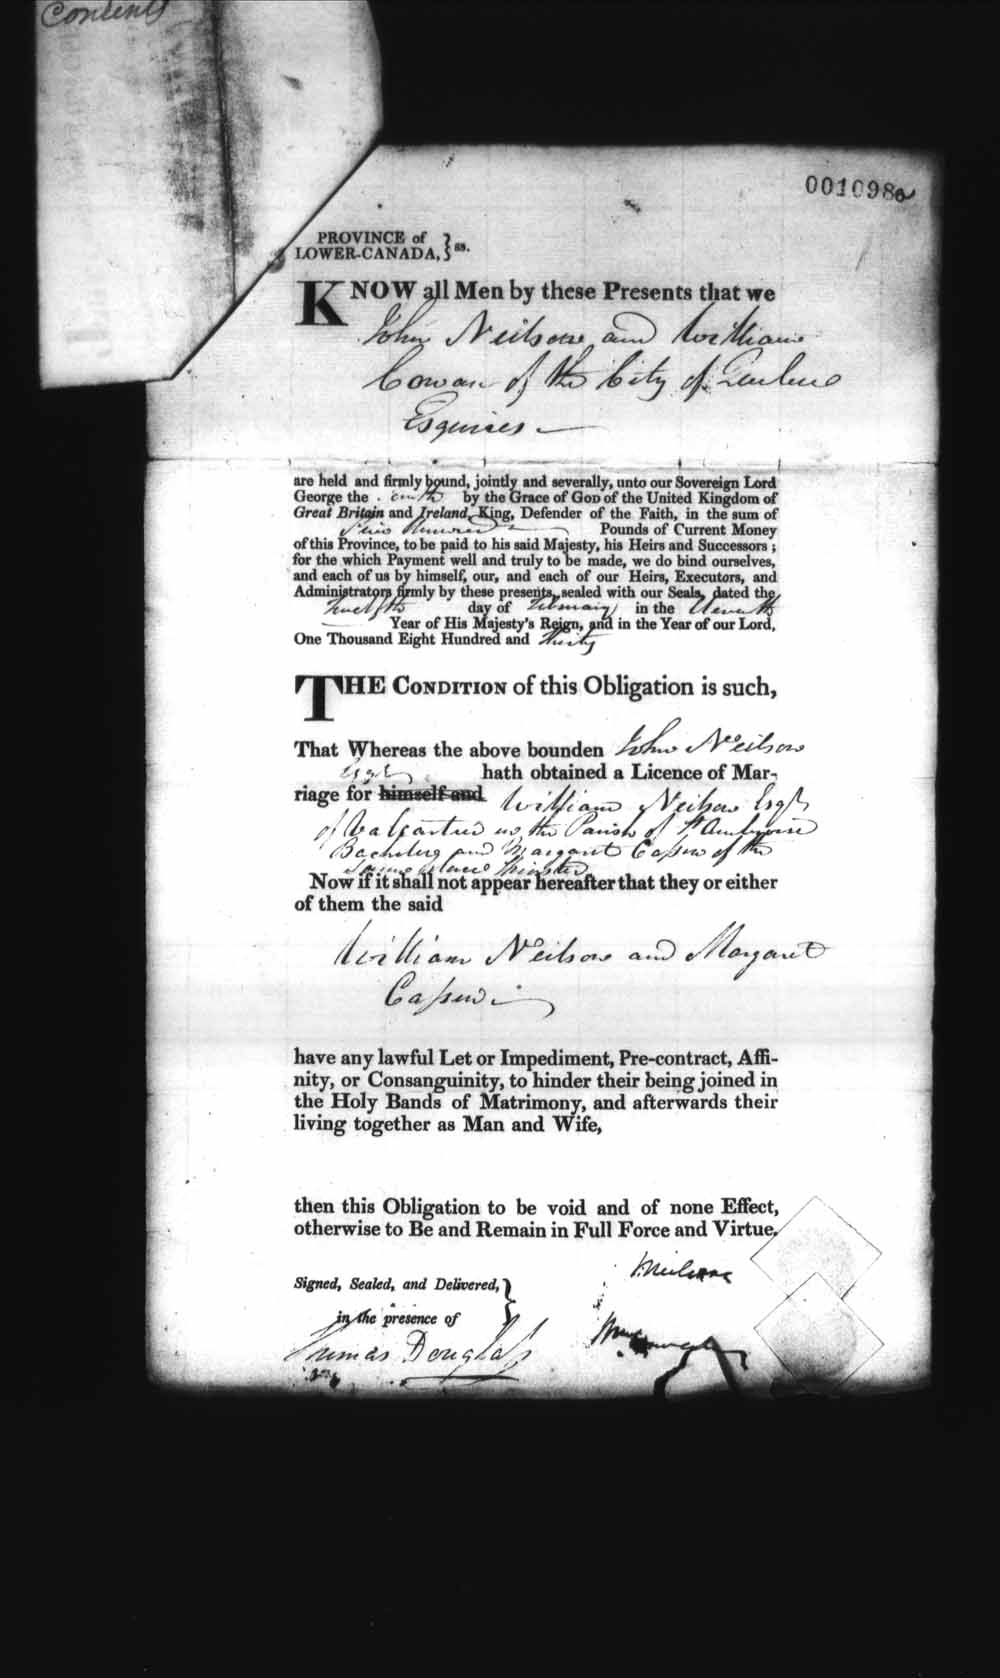 Consent
001098
PROVINCE of
LOWER-CANADA, } ss.
KNOW all Men by these Presents that we
John Neilson and William
Cowan of the City of Quebec
Esquires
are held and firmly bound, jointly and severally, unto our Sovereign Lord
George the fourth by the Grace of God of the United Kingdom of
Great Britain and Ireland, King, Defender of the Faith, in the sum of
Hundred Pounds of Current Money
of this Province, to be paid to his said Majesty, his Heirs and Successors ;
for the which Payment well and truly to be made, we do bind ourselves,
and each of us by himself, our, and each of our Heirs, Executors, and
Administrators firmly by these presents, sealed with our Seals, dated the
twelfth day of February in the Eleventh
Year of His Majesty's Reign, and in the Year of our Lord,
One Thousand Eight Hundred and thirty
THE CONDITION of this Obligation is such,
That Whereas the above bounden John Neilson
Esqr hath obtained a Licence of Mar-
riage for himself and William Neilson Esqr
of Valcartier in the Parish of St Ambroise
Bachelor and Margaret Cassin of the
same place Spinster
Now if it shall not appear hereafter that they or either
of them the said
William Neilson and Margaret
Cassin
have any lawful Let or Impediment, Pre-contract, Affi-
nity, or Consanguinity, to hinder their being joined in
the Holy Bands of Matrimony, and afterwards their
living together as Man and Wife,
then this Obligation to be void and of none Effect,
otherwise to Be and Remain in Full Force and Virtue.
J Neilson
Signed, Sealed, and Delivered, }
in the presence of
Wm Cowan
Thomas Douglass